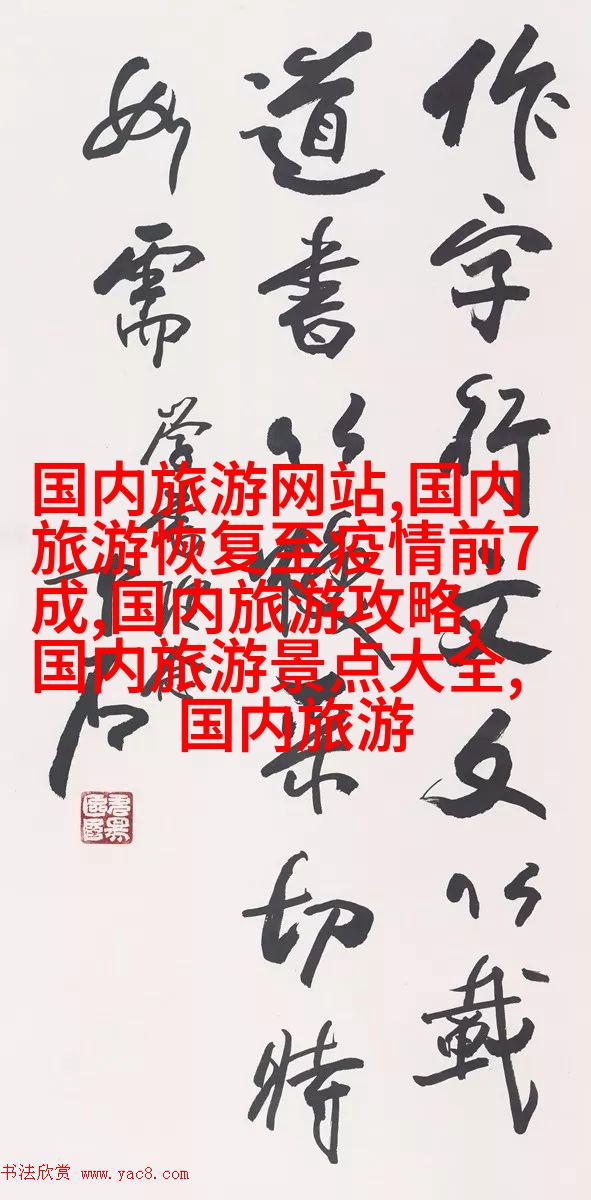 作字行文以載
道書以采切時
如需
国内旅游网站,国内
旅游恢复至疫情前7
成,国内旅游攻略,
国内旅游景点大全,
国内旅游
书法欣赏 www.yac8.com